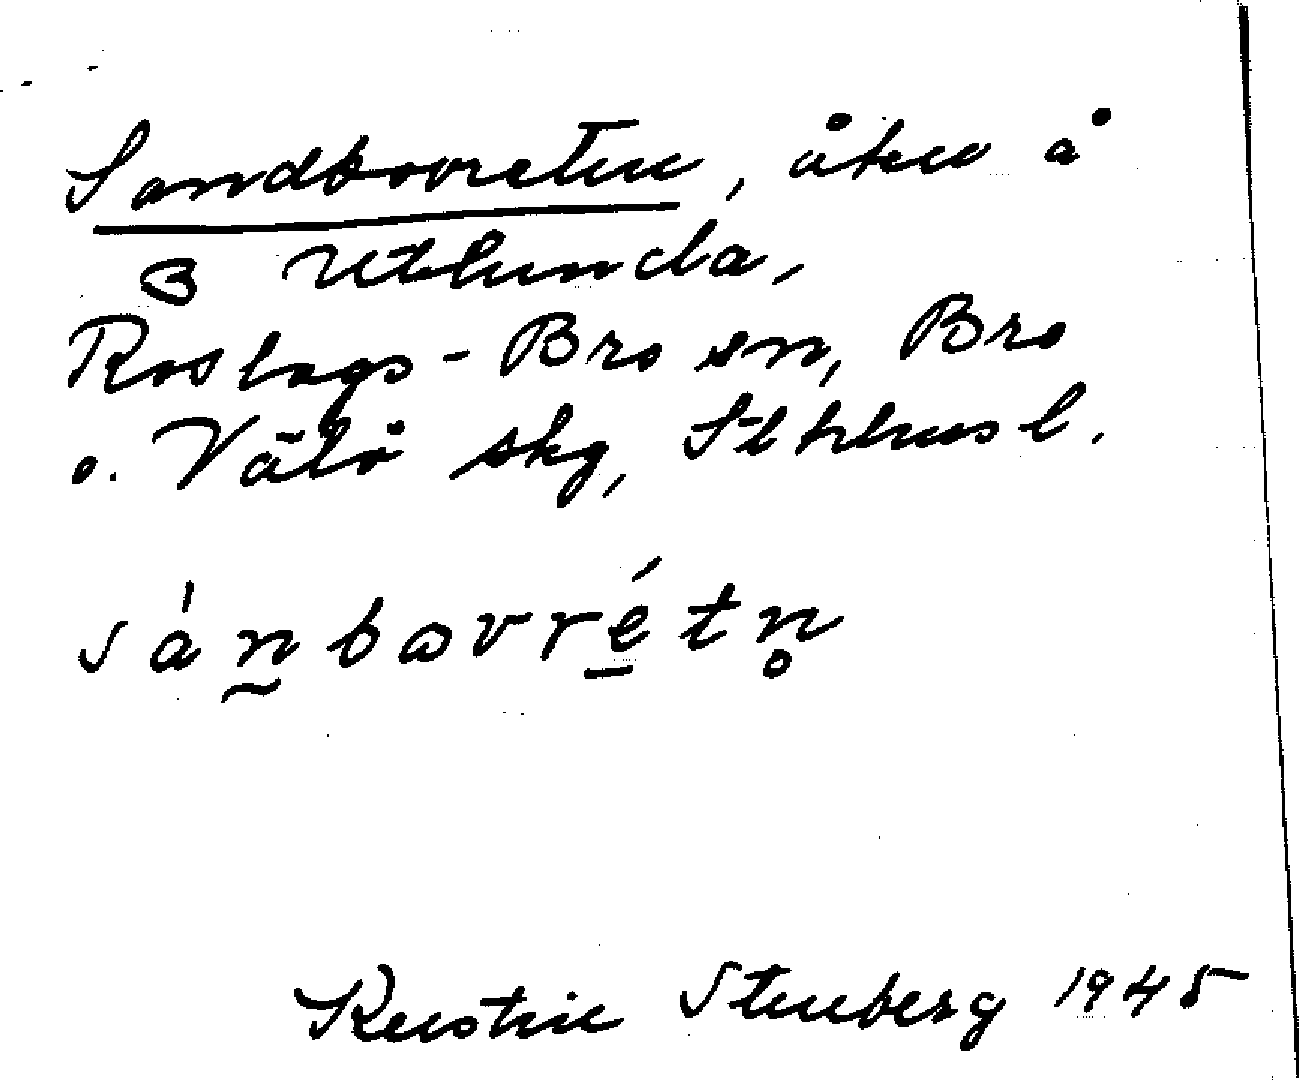 Sandbovreten, åker å
3 Utlunda,
Roslags-Bro sn, Bro
o. Vätö skg, Sthlms l.
sánbovrétn̥
Kerstin Stenberg 1945